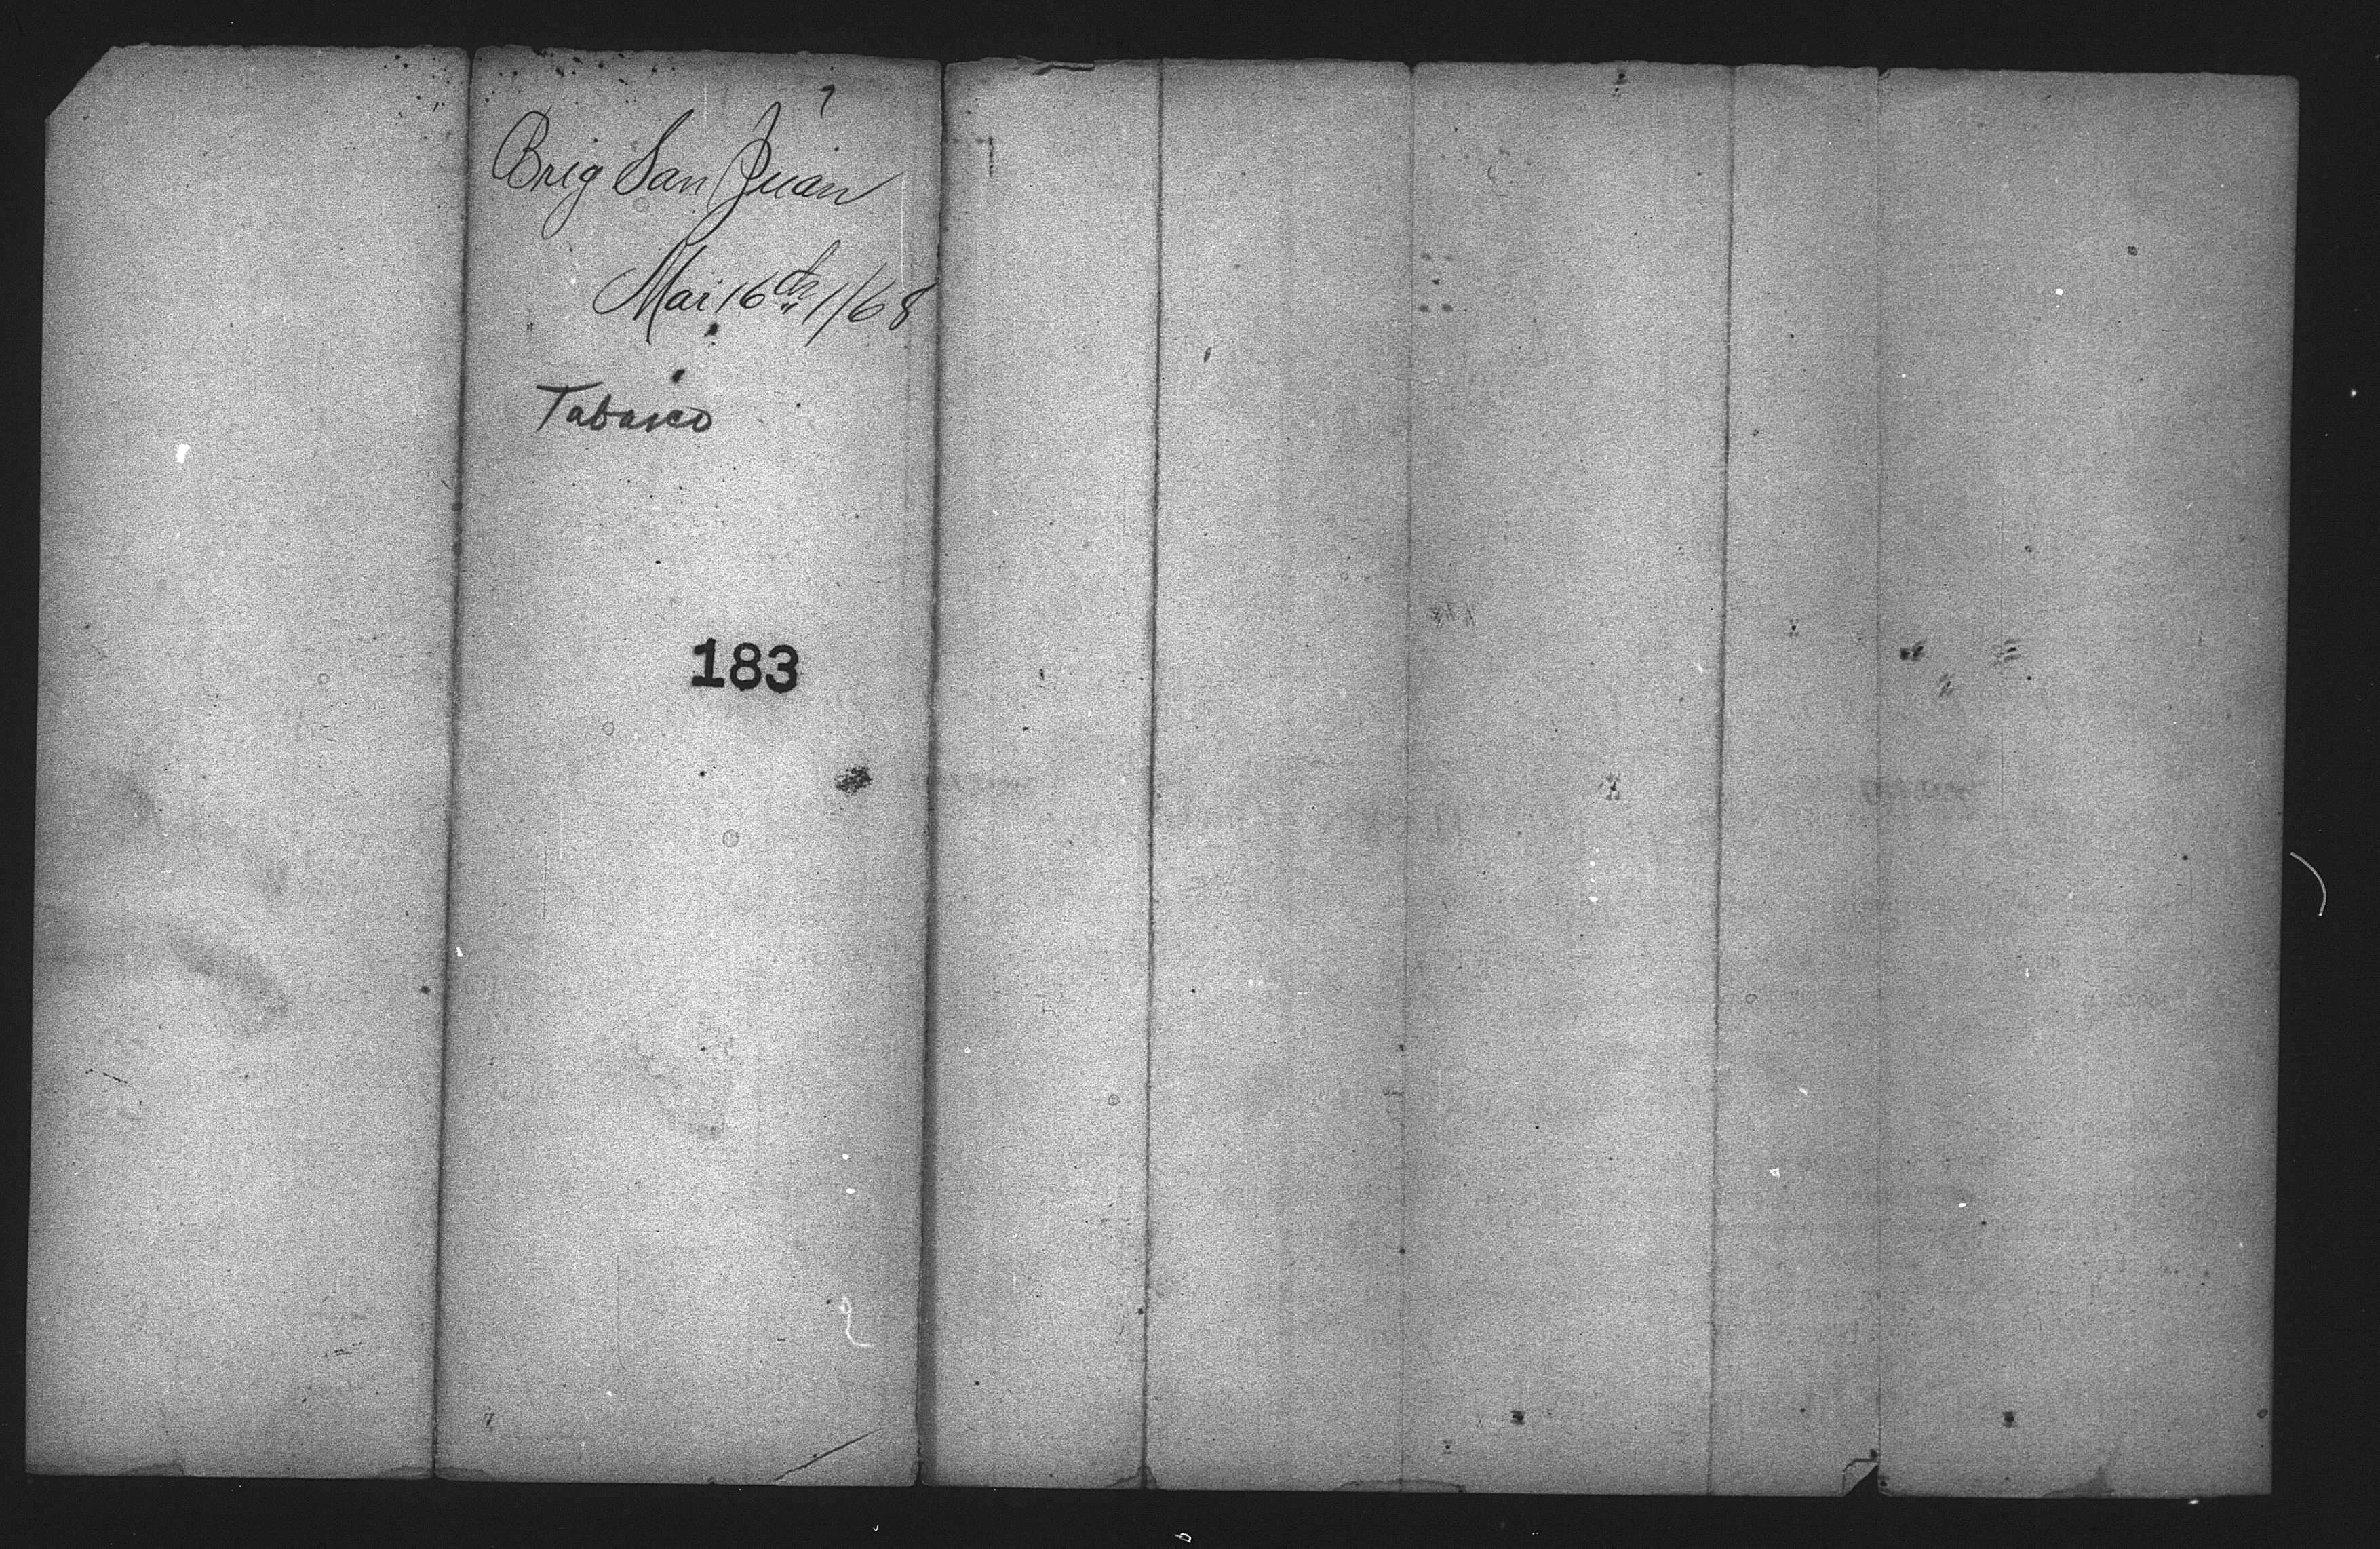 Brig San Juan
Mai 16th 1/68
Tabasco
183